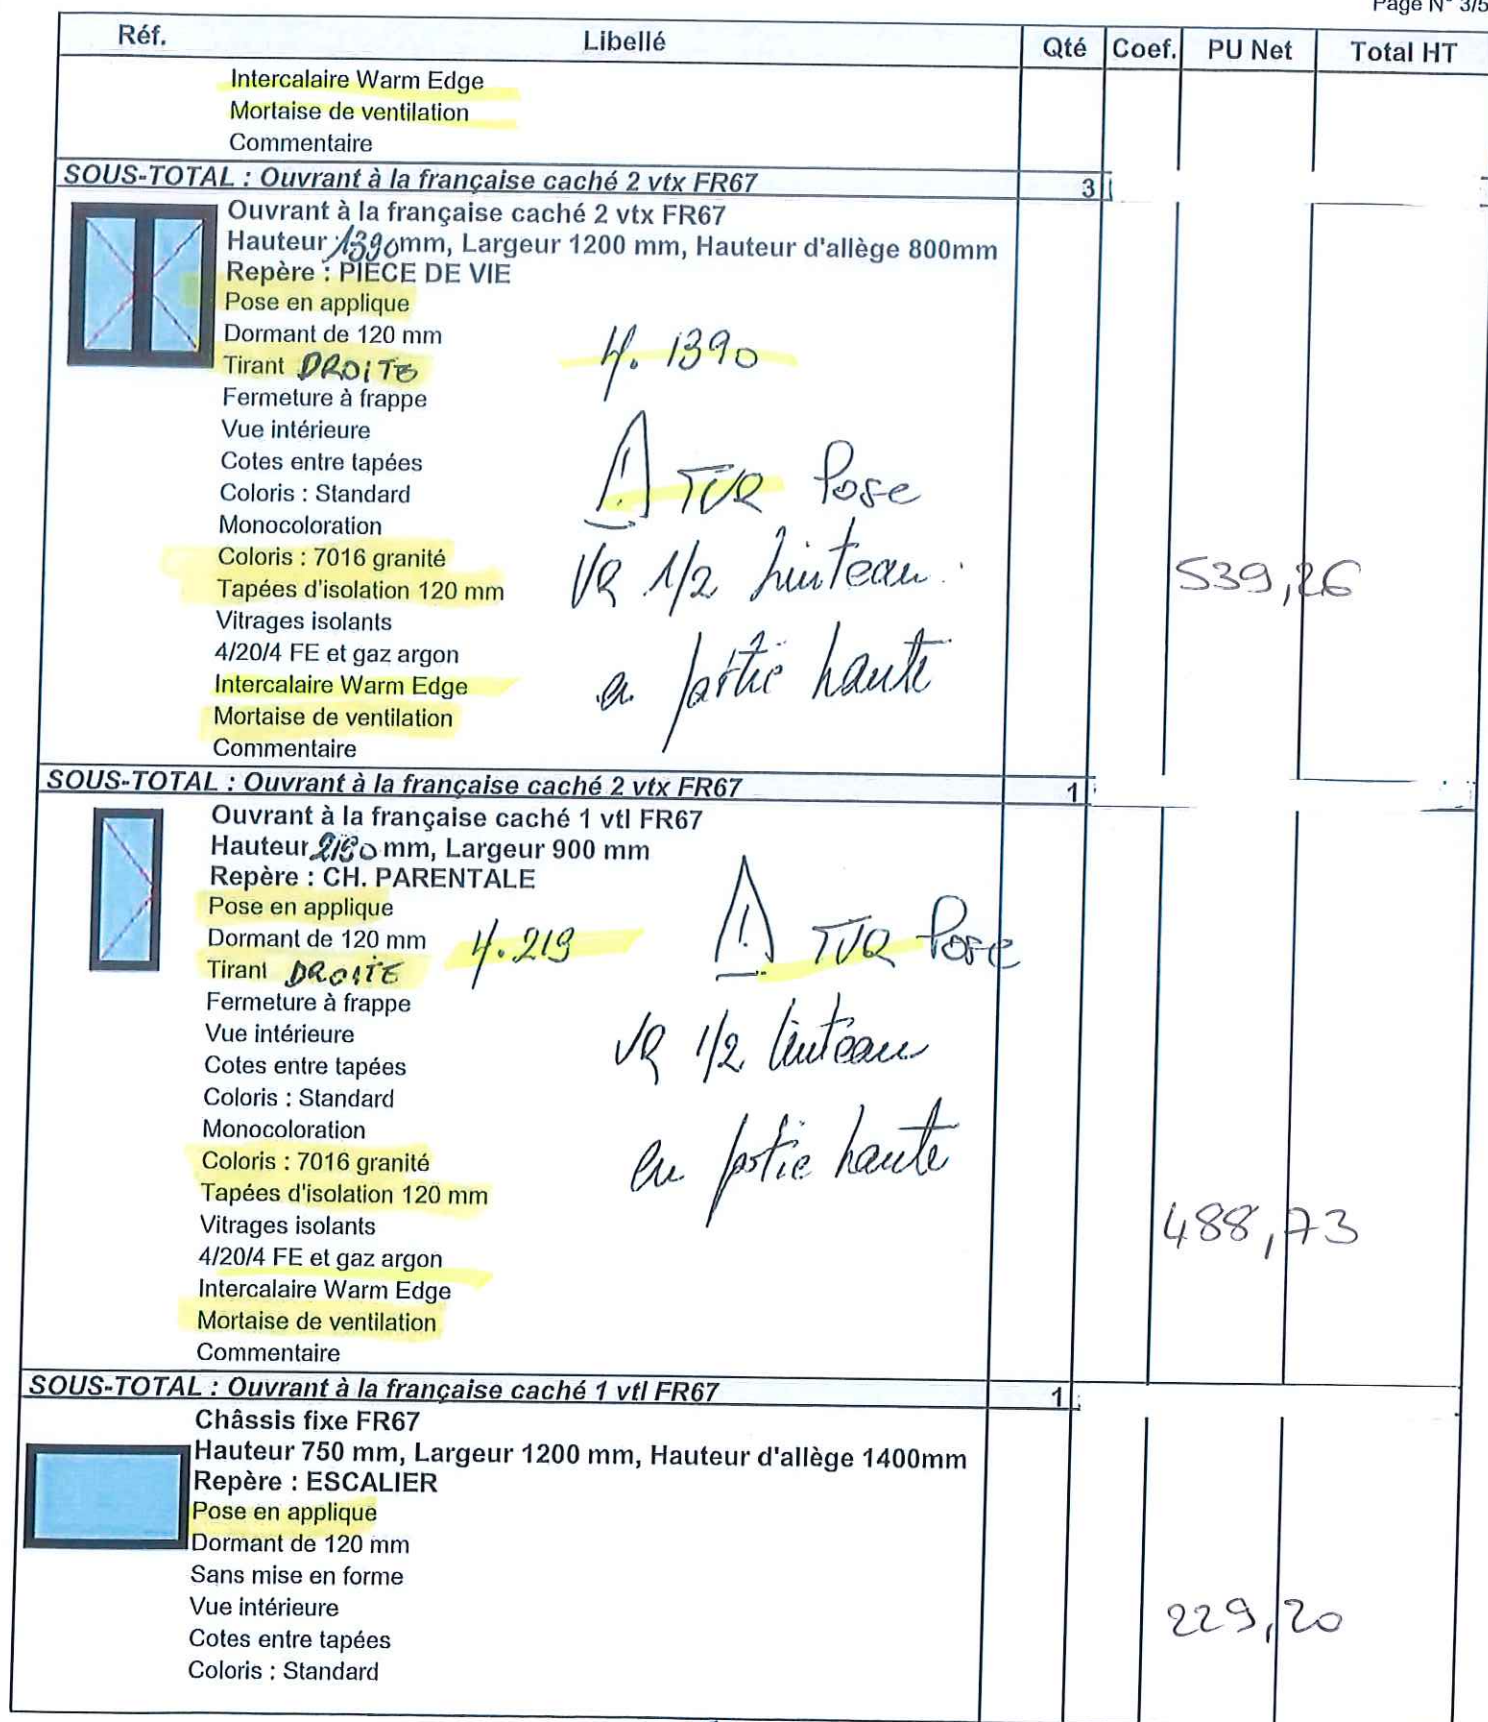 Page N° 3/5
Réf. Libellé Qté Coef. PU Net Total HT
Intercalaire Warm Edge
Mortaise de ventilation
Commentaire
SOUS-TOTAL : Ouvrant à la française caché 2 vtx FR67 3
Ouvrant à la française caché 2 vtx FR67
Hauteur 1390mm, Largeur 1200 mm, Hauteur d'allège 800mm
Repère : PIECE DE VIE
Pose en applique
Dormant de 120 mm
H. 1390
Tirant DROITE
Fermeture à frappe
Vue intérieure
Cotes entre tapées
! TVR Pose
Coloris : Standard
Monocoloration
Coloris : 7016 granité
VR 1/2 linteau
539,26
Tapées d'isolation 120 mm
Vitrages isolants
4/20/4 FE et gaz argon
Intercalaire Warm Edge
en partie haute
Mortaise de ventilation
Commentaire
SOUS-TOTAL : Ouvrant à la française caché 2 vtx FR67 1
Ouvrant à la française caché 1 vtl FR67
Hauteur 2190 mm, Largeur 900 mm
Repère : CH. PARENTALE
Pose en applique
Dormant de 120 mm H. 219 ! TVR Pose
Tirant DROITE
Fermeture à frappe
Vue intérieure
VR 1/2 linteau
Cotes entre tapées
Coloris : Standard
Monocoloration
Coloris : 7016 granité
en partie haute
Tapées d'isolation 120 mm
Vitrages isolants 488,73
4/20/4 FE et gaz argon
Intercalaire Warm Edge
Mortaise de ventilation
Commentaire
SOUS-TOTAL : Ouvrant à la française caché 1 vtl FR67 1
Châssis fixe FR67
Hauteur 750 mm, Largeur 1200 mm, Hauteur d'allège 1400mm
Repère : ESCALIER
Pose en applique
Dormant de 120 mm
Sans mise en forme
Vue intérieure 229,20
Cotes entre tapées
Coloris : Standard